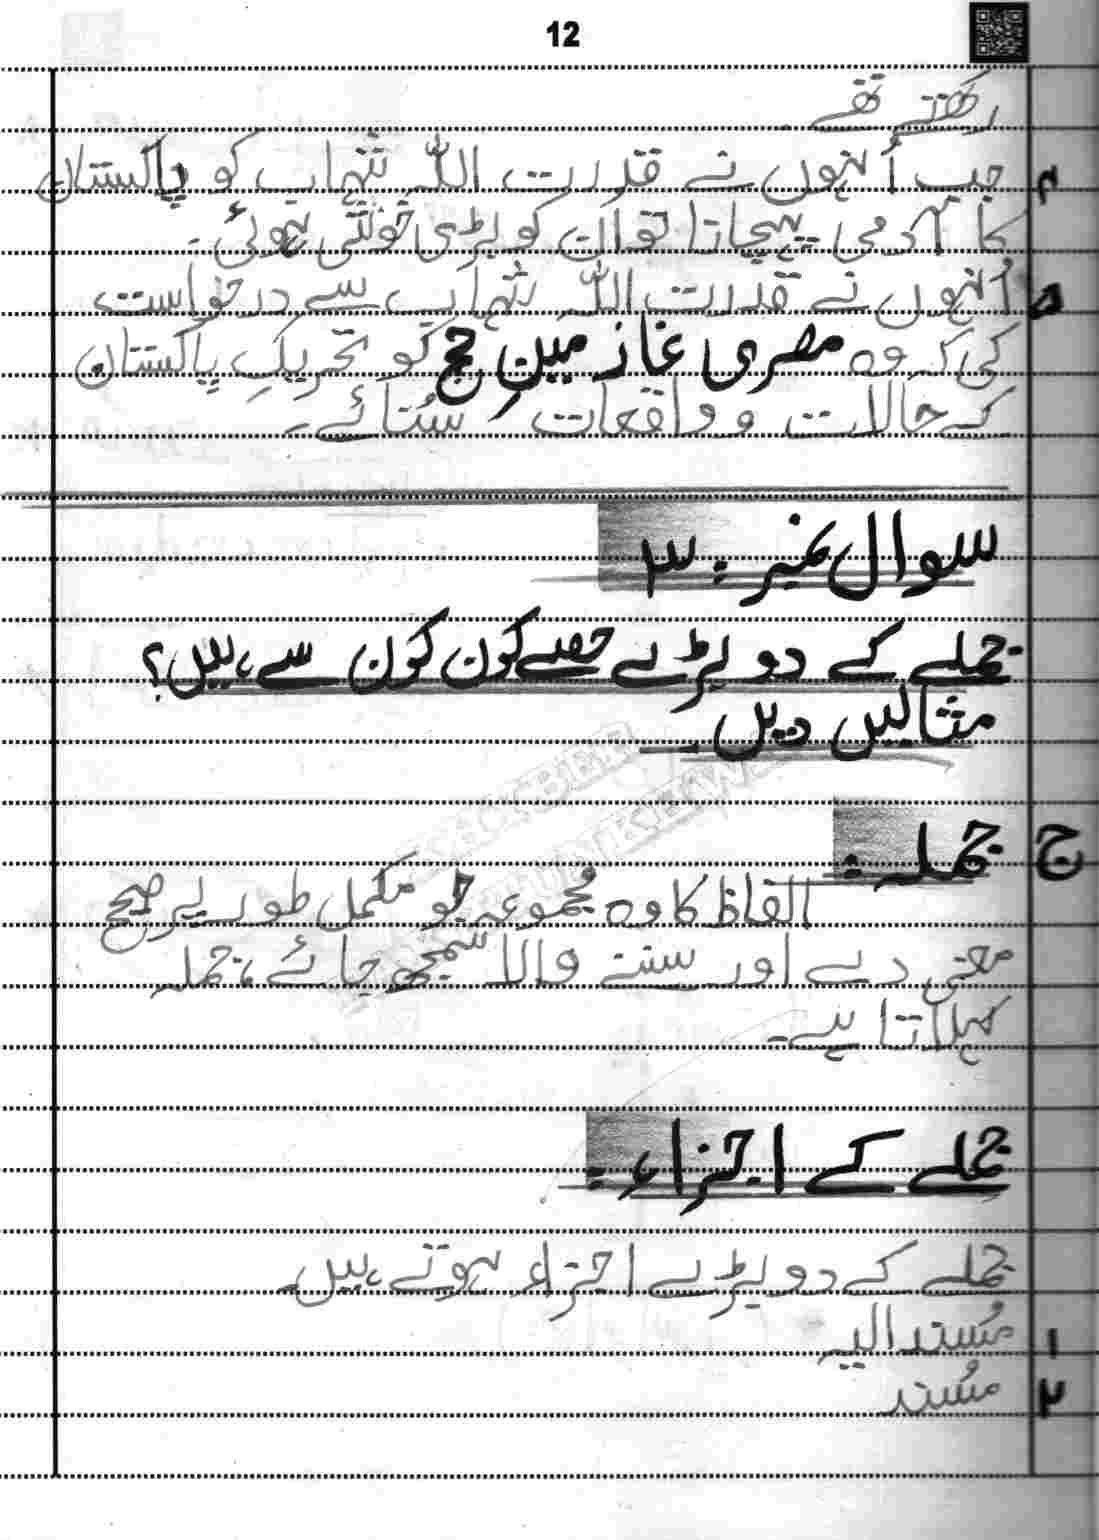 12
رکھتے تھے۔
۴ جب اُنہوں نے قدرت اللہ شہاب کو پاکستان
کا آدمی پہچانا تو ان کو بڑی خوشی ہوئی۔
۵ اُنہوں نے قدرت اللہ شہاب سے درخواست
کی کہ وہ مصری غازمینِ حج کو تحریکِ پاکستان
کے حالات و واقعات سُنائے۔
سوال نمبر : ۳
جملے کے دو بڑے حصے کون کون سے ہیں؟
مثالیں دیں۔
ج جملہ :
الفاظ کا وہ مجموعہ جو مکمل طور پر صحیح
معنی دے اور سننے والا سمجھ جائے، جملہ
کہلاتا ہے۔
جملے کے اجزاء :
جملے کے دو بڑے اجزاء ہوتے ہیں۔
۱ مُسند الیہ
۲ مُسند